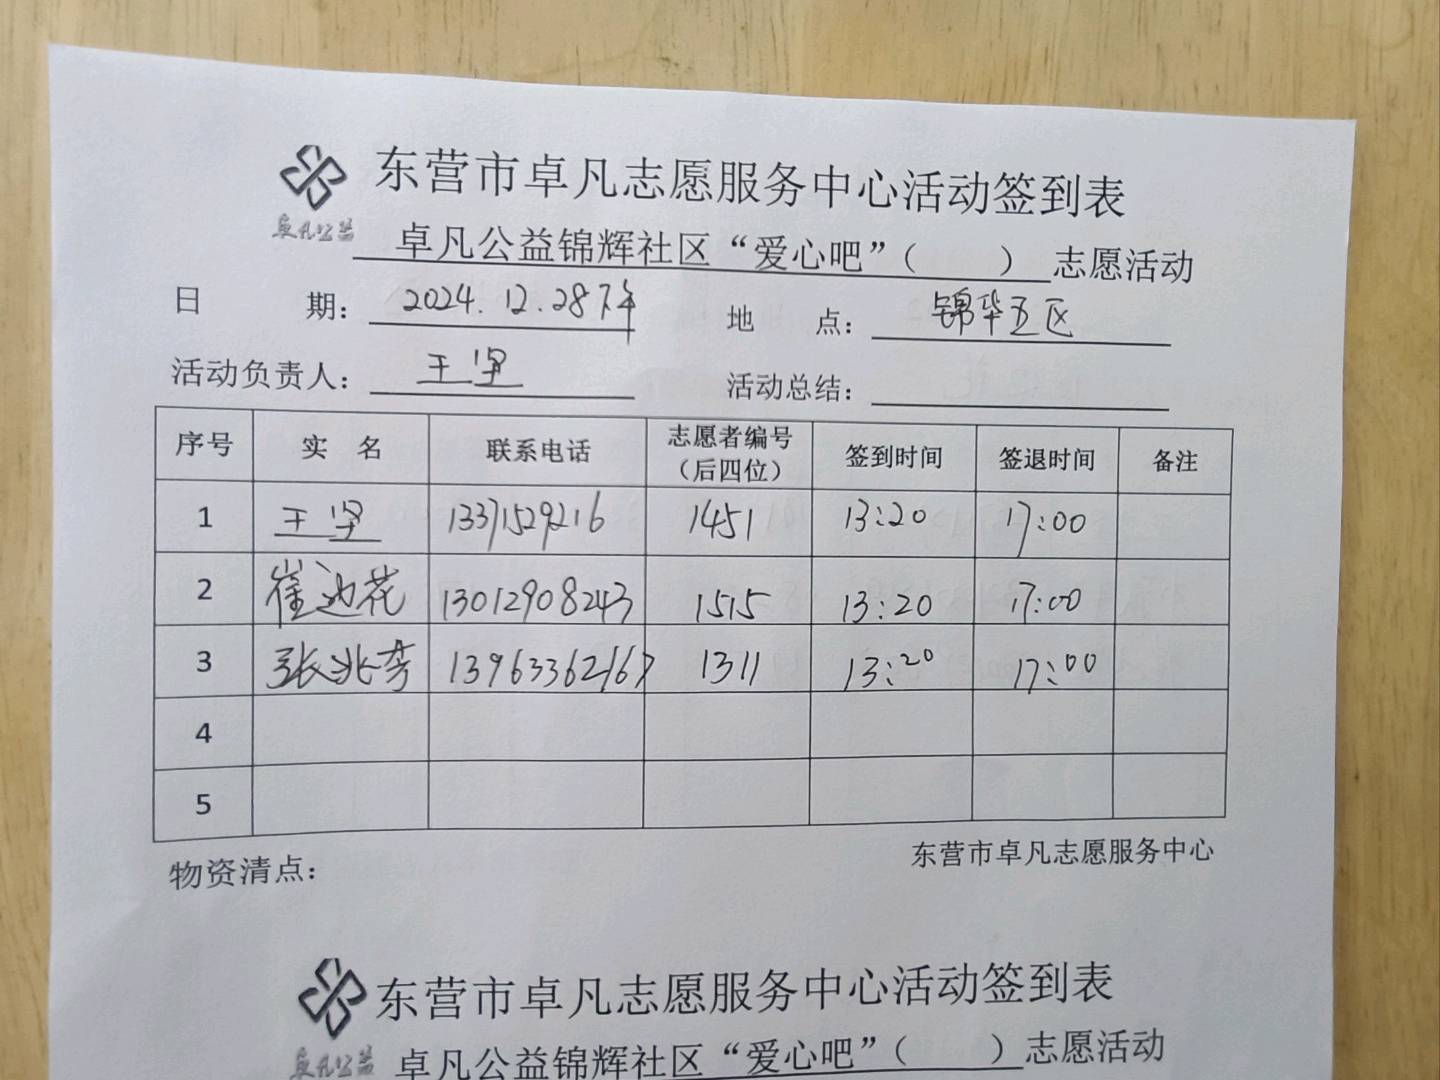 东营市卓凡志愿服务中心活动签到表
卓凡公益
卓凡公益锦辉社区“爱心吧”（ ）志愿活动
日 期：2024.12.28下午 地 点：锦华五区
活动负责人：王坚 活动总结：
序号 实 名 联系电话 志愿者编号（后四位） 签到时间 签退时间 备注
1 王坚 13371529216 1451 13:20 17:00
2 崔迎花 13012908243 1515 13:20 17:00
3 张兆芳 13963362167 1311 13:20 17:00
4
5
物资清点： 东营市卓凡志愿服务中心
东营市卓凡志愿服务中心活动签到表
卓凡公益
卓凡公益锦辉社区“爱心吧”（ ）志愿活动